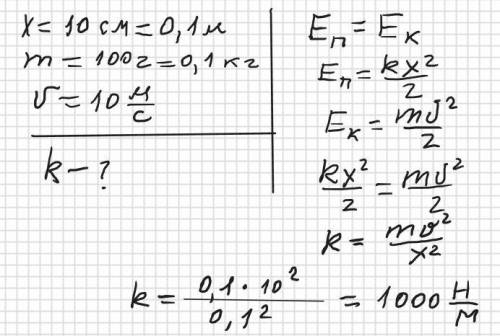 x = 10 см = 0,1 м
m = 100 г = 0,1 кг
υ = 10 м/с
k – ?
Eп = Eк
Eп = kx²/2
Eк = mυ²/2
kx²/2 = mυ²/2
k = mυ²/x²
k = 0,1 · 10²/0,1² = 1000 Н/м